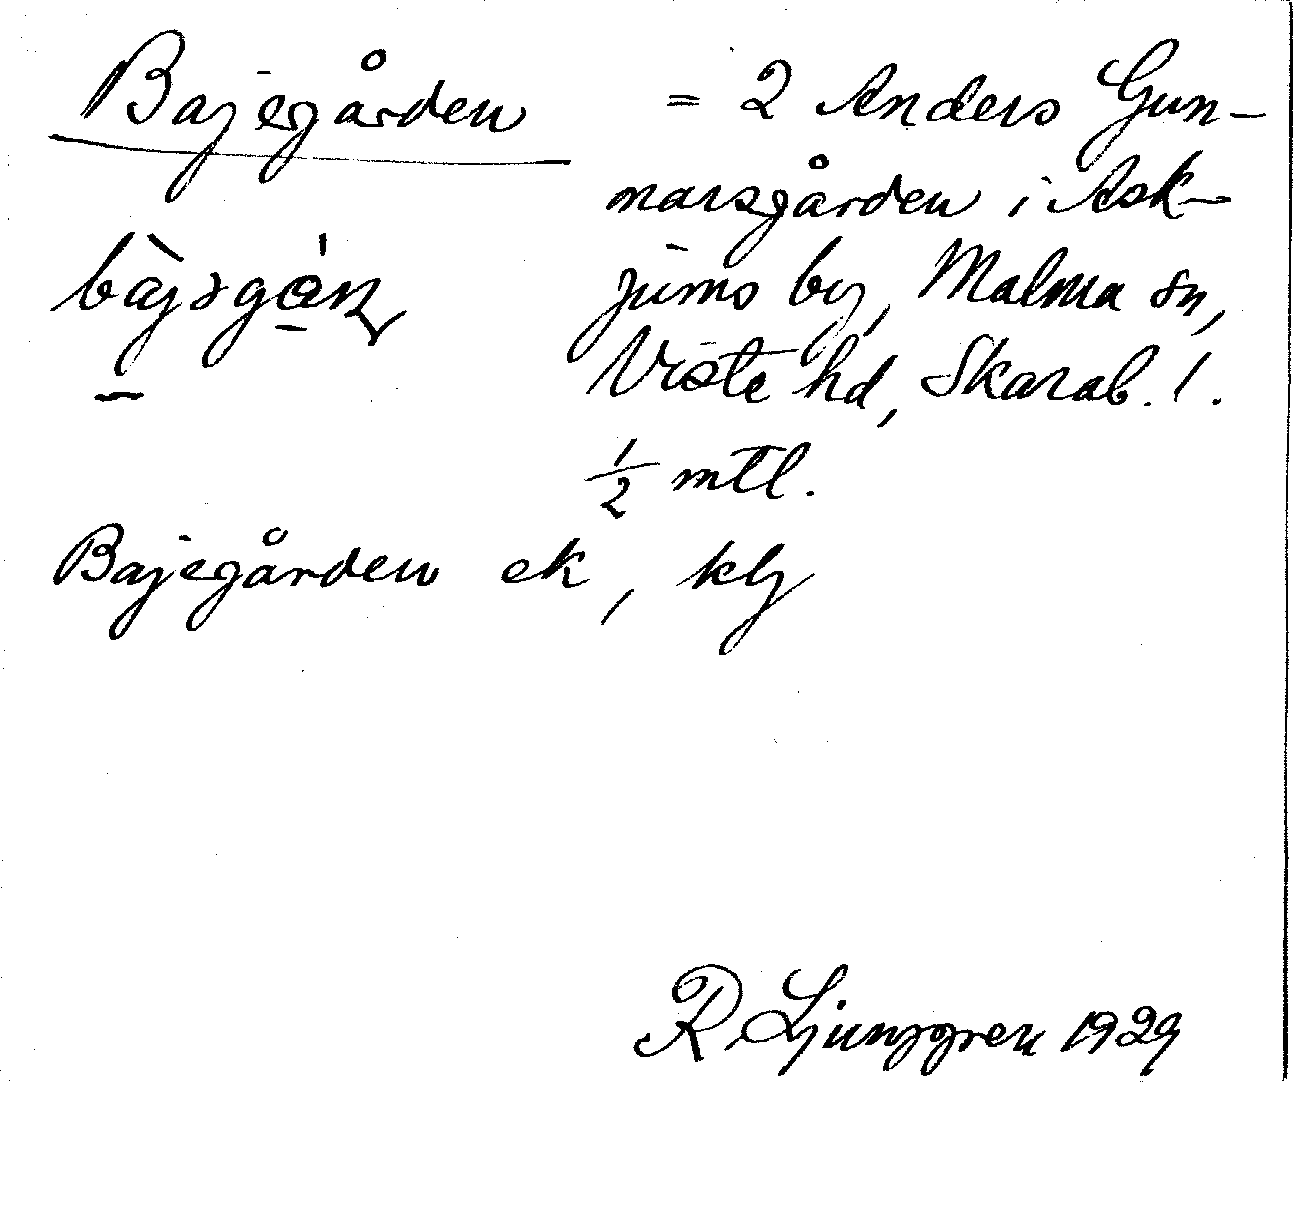 Bajegården = 2 Anders Gun-
narsgården i Ask-
jums by, Malma sn,
Viste hd, Skarab. l.
1/2 mtl.
Bajegården ek, klj
R. Ljunggren 1929